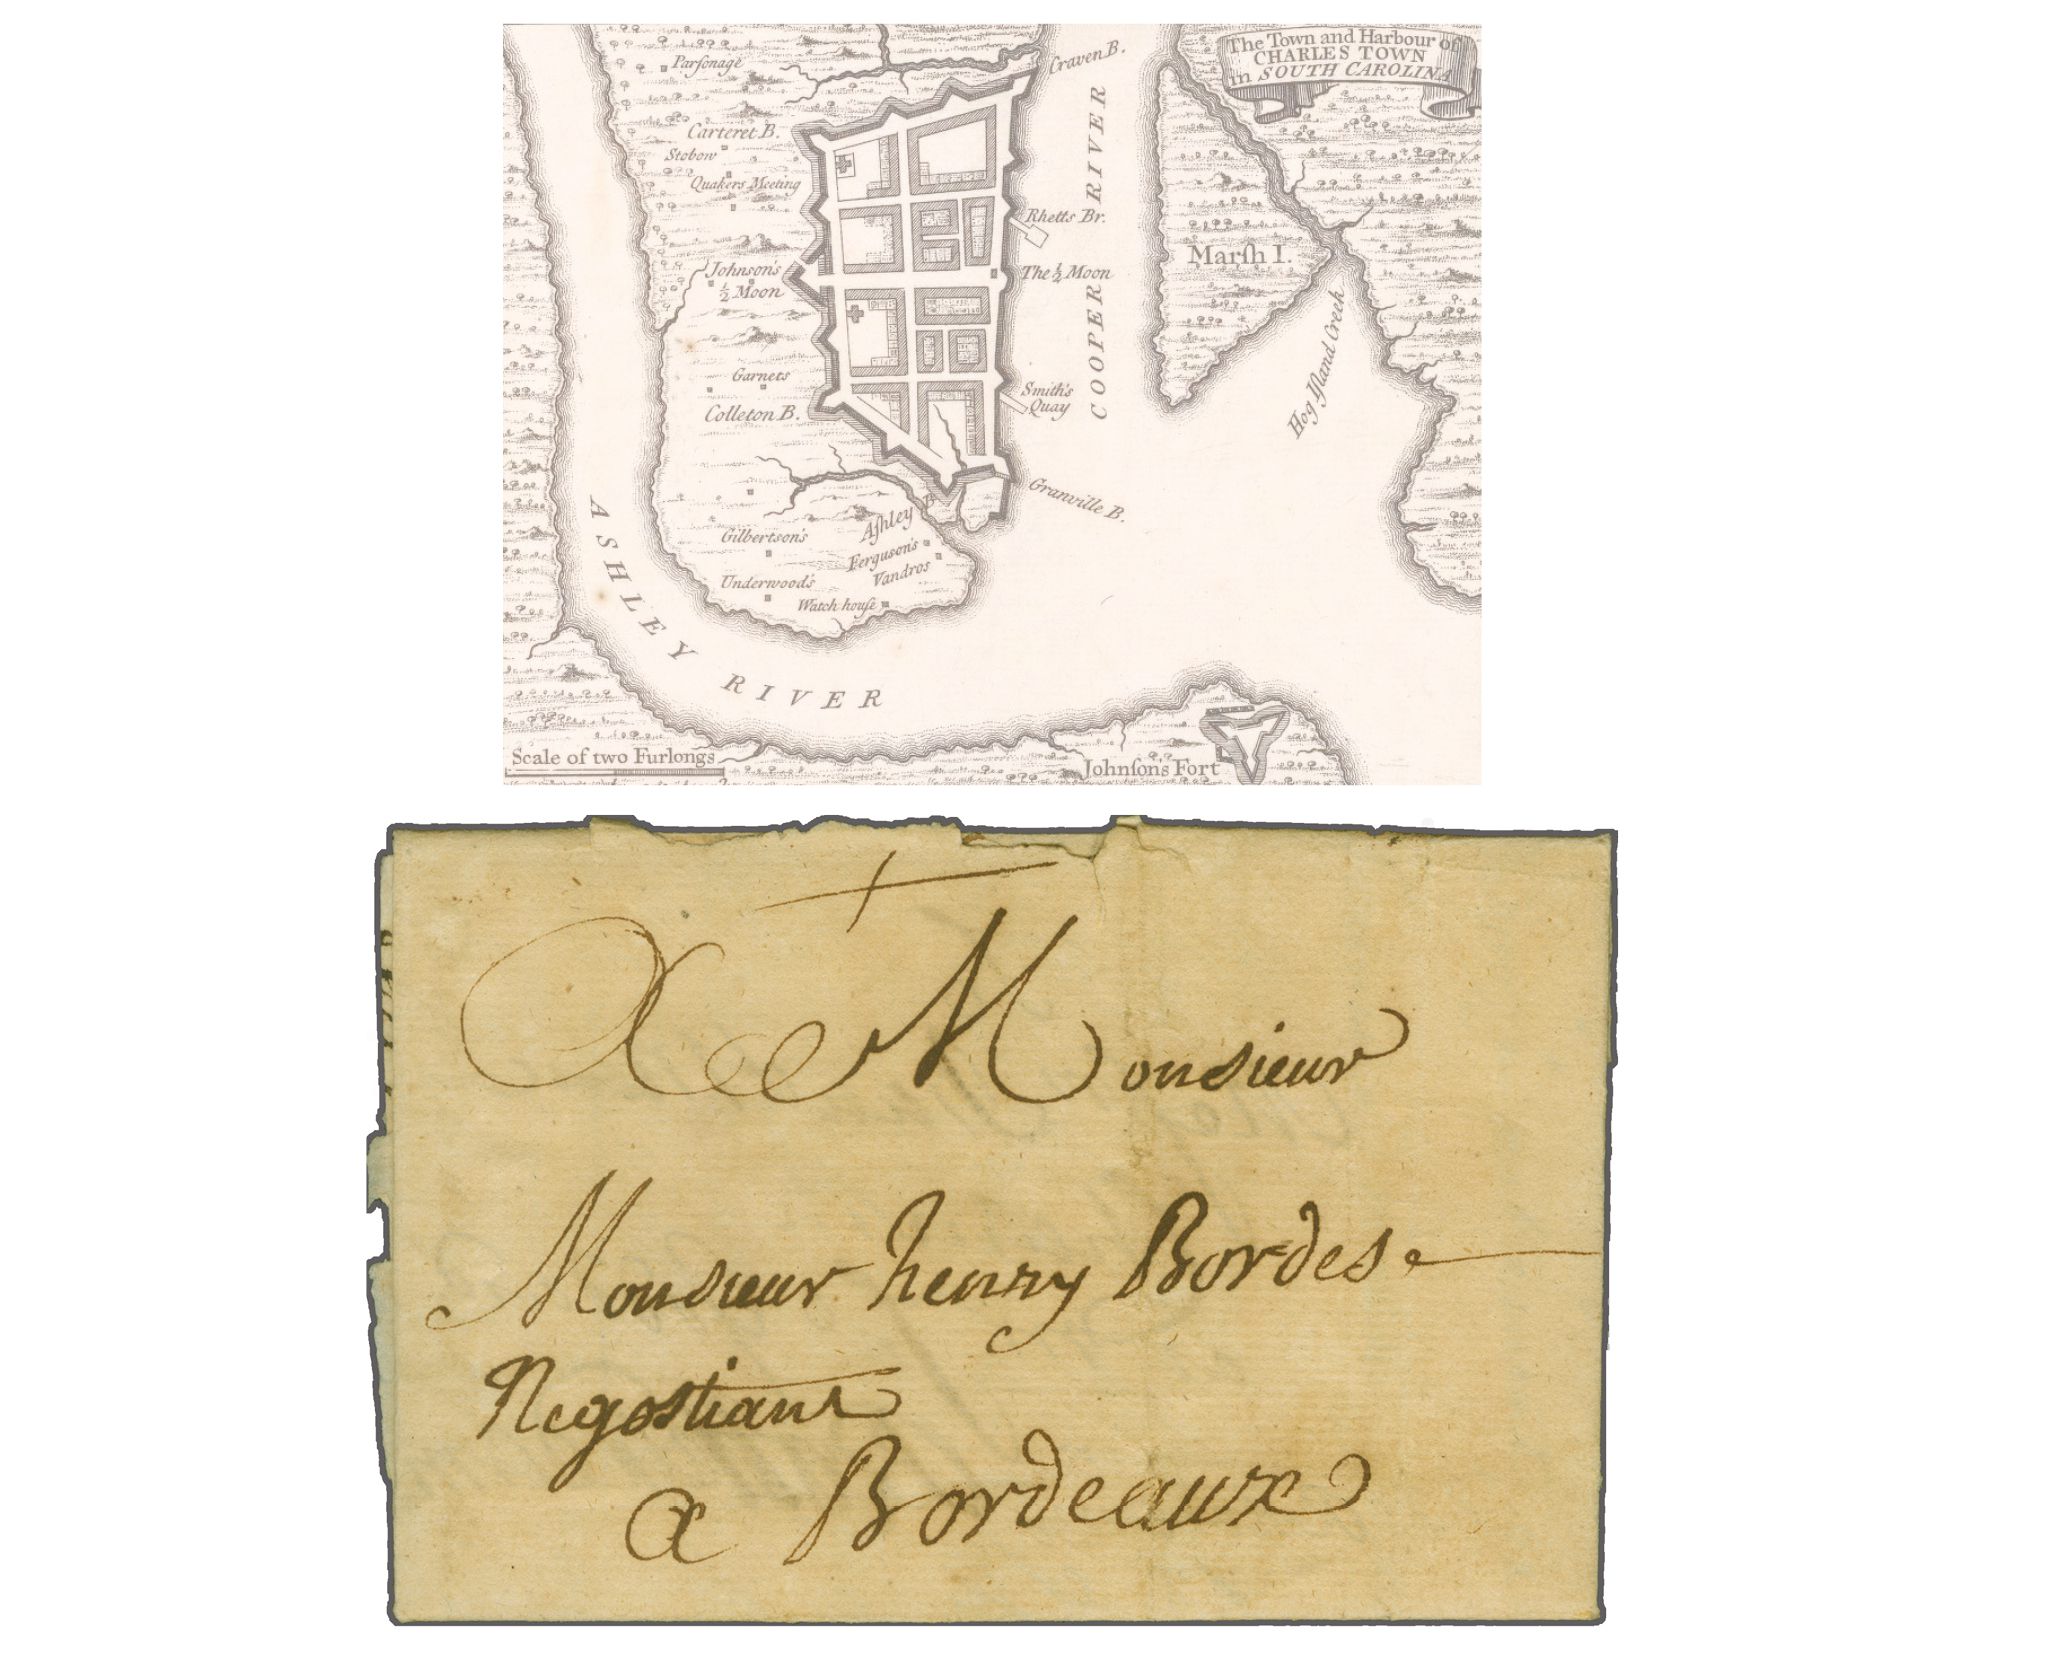 The Town and Harbour of
CHARLES TOWN
in SOUTH CAROLINA
Craven B.
Parſonage
Carteret B.
Stobow
Quakers Meeting
COOPER RIVER
Rhetts Br.
Marſh I.
Johnson's
½ Moon
The ½ Moon
Hog Iſland Creek
Garnets
Colleton B.
Smith's
Quay
Granville B.
Aſhley B
Gilbertson's
Ferguson's
Vandros
Underwood's
Watch houſe
ASHLEY RIVER
Scale of two Furlongs
2
Johnſon's Fort
A Monsieur
Monsieur henry Bordes
Negostiant
a Bordeaux